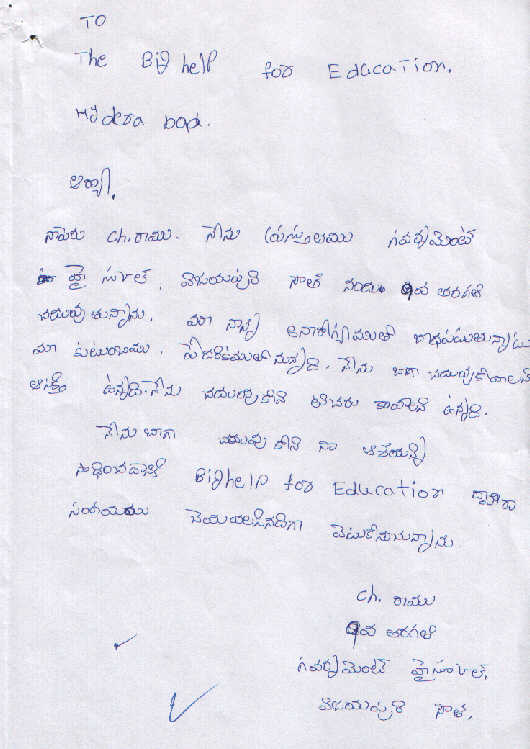 TO
The Big help for Education.
Hydera bad.
ఆర్యా,
నాపేరు ch. రాము. నేను ప్రస్తుతము గవర్నమెంట్
హై స్కూల్, విజయపురి సౌత్ నందు 9వ తరగతి
చదువుతున్నాను. మా నాన్న అనారోగ్యముతో బాధపడుతున్నాడు
మా కుటుంబము. పేదరికములోనున్నది. నేను బాగా చదువుకోవాలని
ఆసక్తి ఉన్నది. నేను చదువుకొని టీచరు కావాలని ఉన్నది.
నేను బాగా చదువు కొని నా ఆశయాన్ని
సాధించడానికి Bighelp for Education ద్వారా
సహాయము చేయవలసినదిగా వేడుకొనుచున్నాను
ch. రాము
9వ తరగతి
గవర్నమెంట్ హైస్కూల్,
విజయపురి సౌత్.